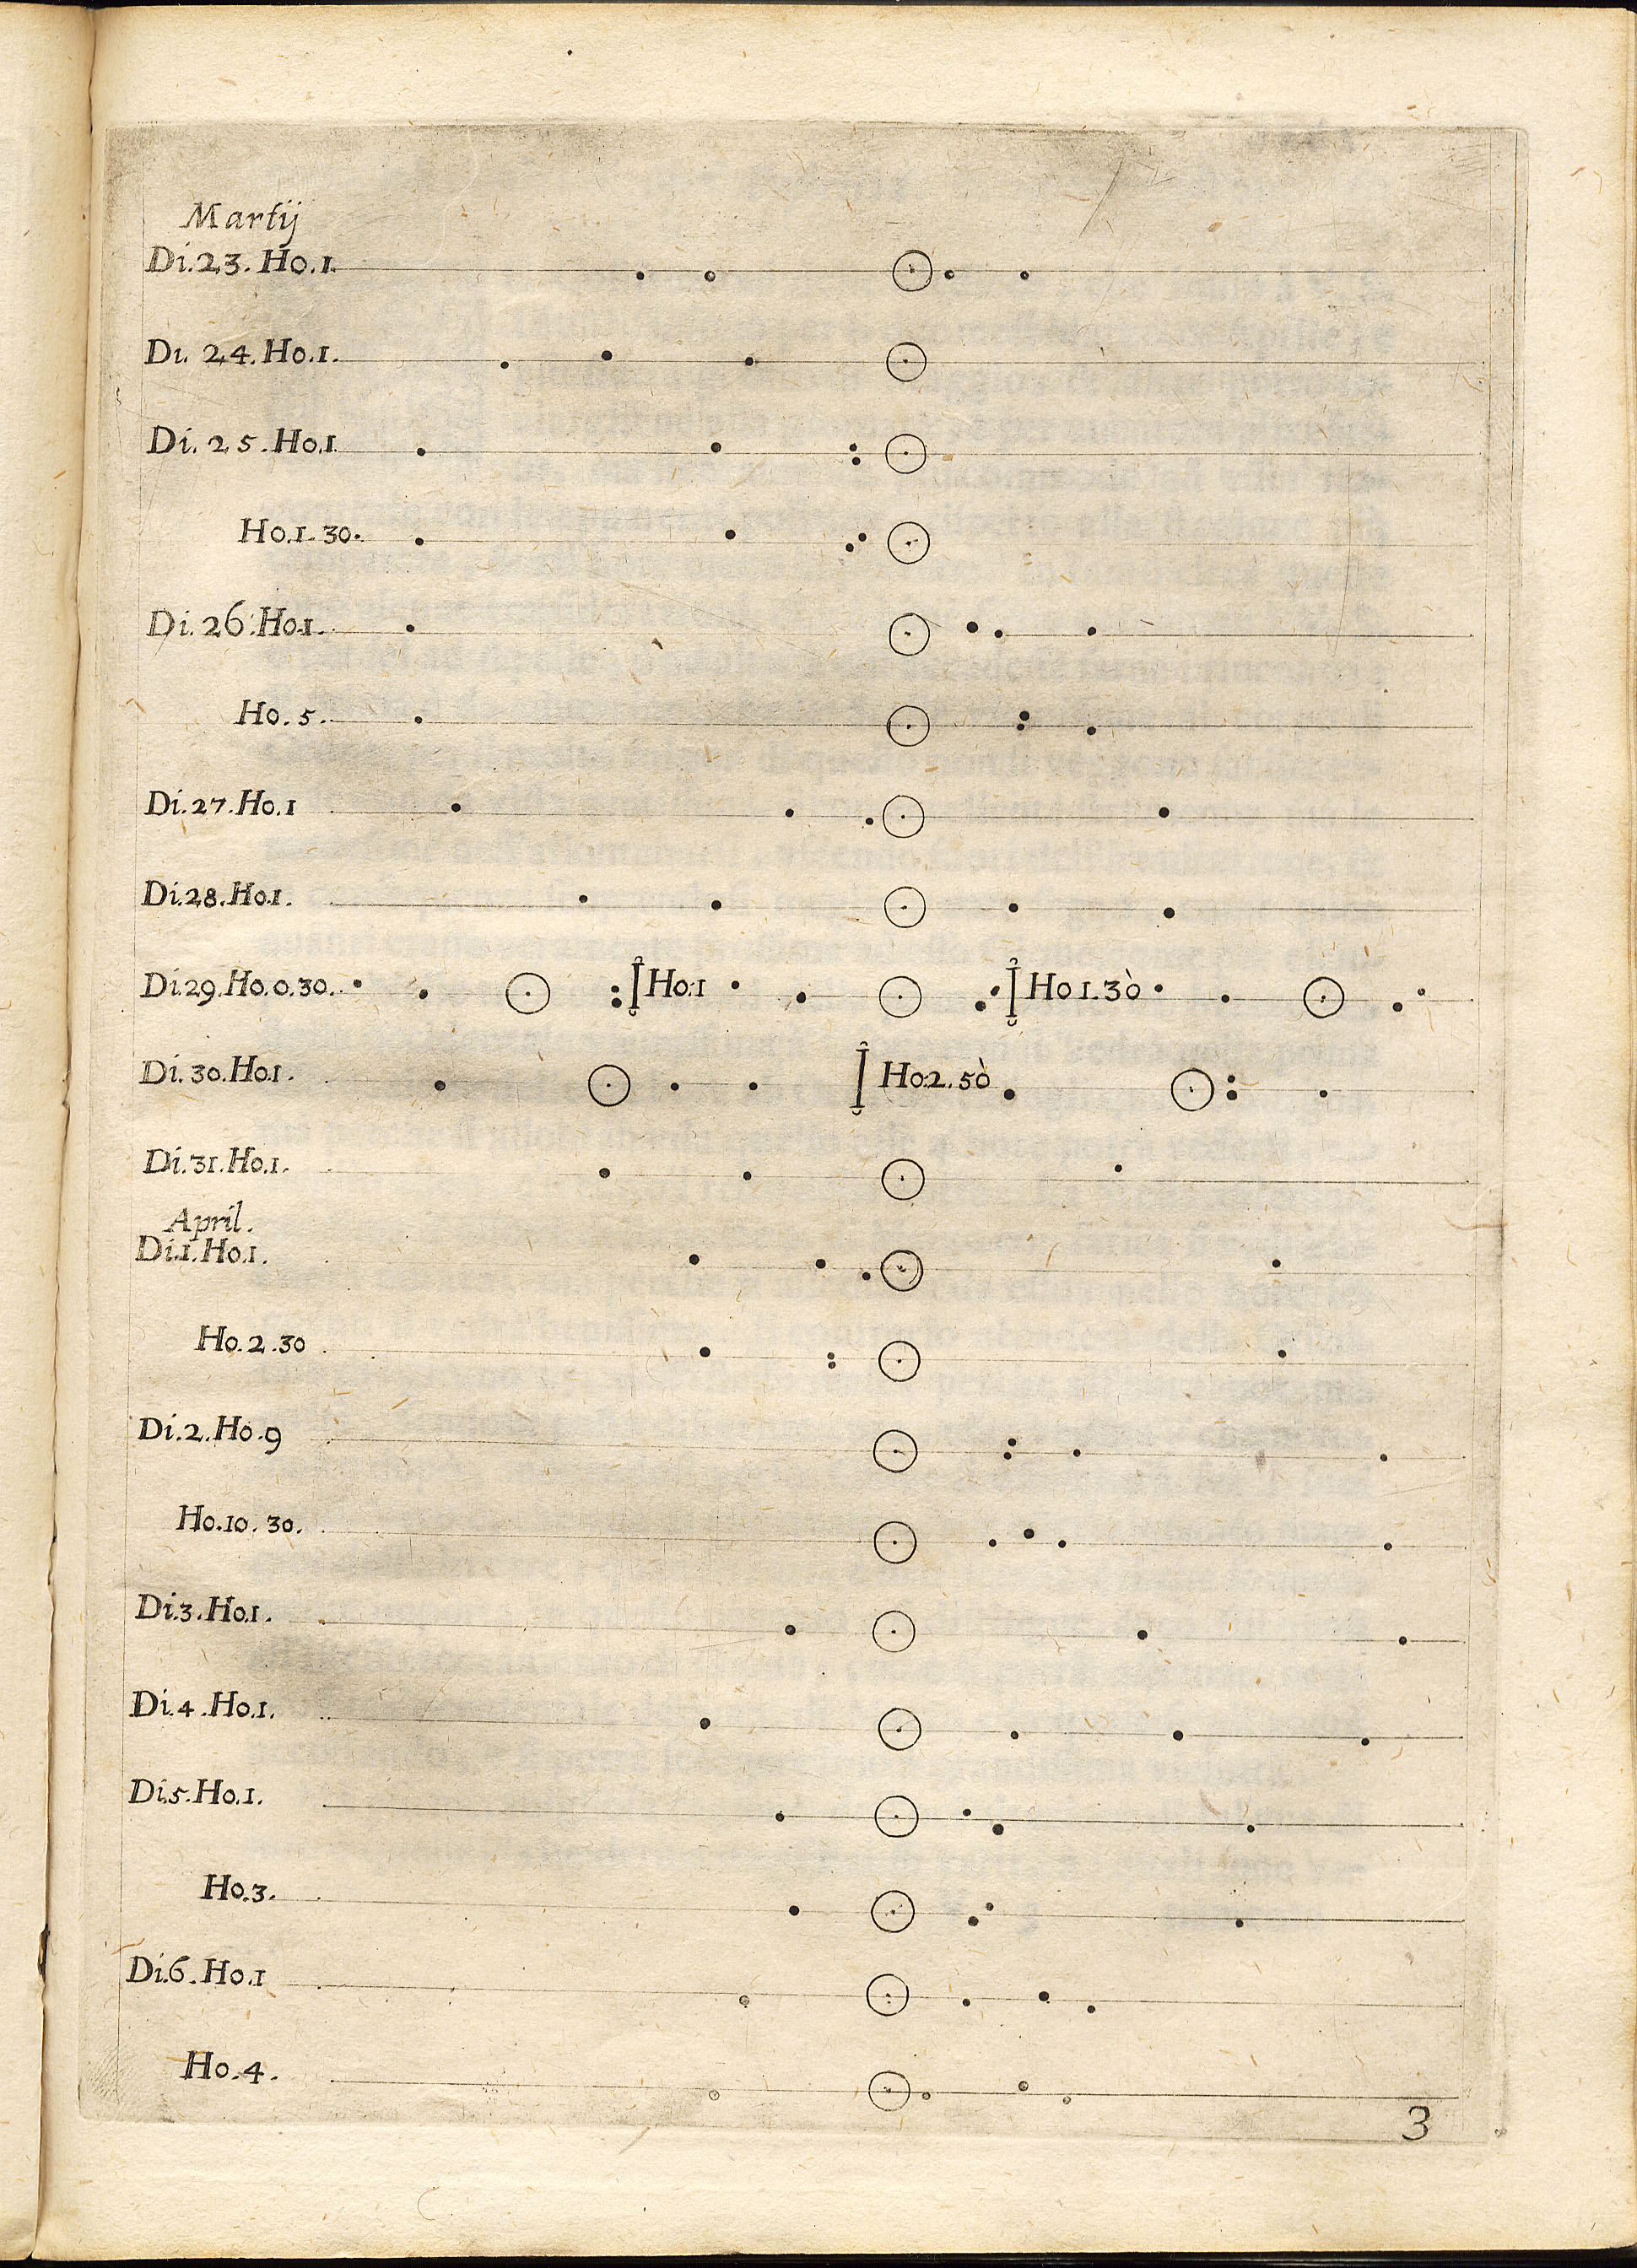 Martij
Di.23. Ho.1.
Di. 24. Ho.1.
Di. 25. Ho.1
Ho.1.30.
Di. 26. Ho.1.
Ho. 5.
Di. 27. Ho.1
Di.28. Ho.1.
Di29. Ho.0.30. Ho.1 Ho 1.30
Di. 30. Ho.1. Ho.2. 50
Di.31. Ho.1.
April.
Di.1. Ho.1.
Ho. 2. 30
Di.2. Ho.9
Ho.10. 30.
Di.3. Ho.1.
Di.4. Ho.1.
Di.5. Ho.1.
Ho.3.
Di.6. Ho.1
Ho.4.
3